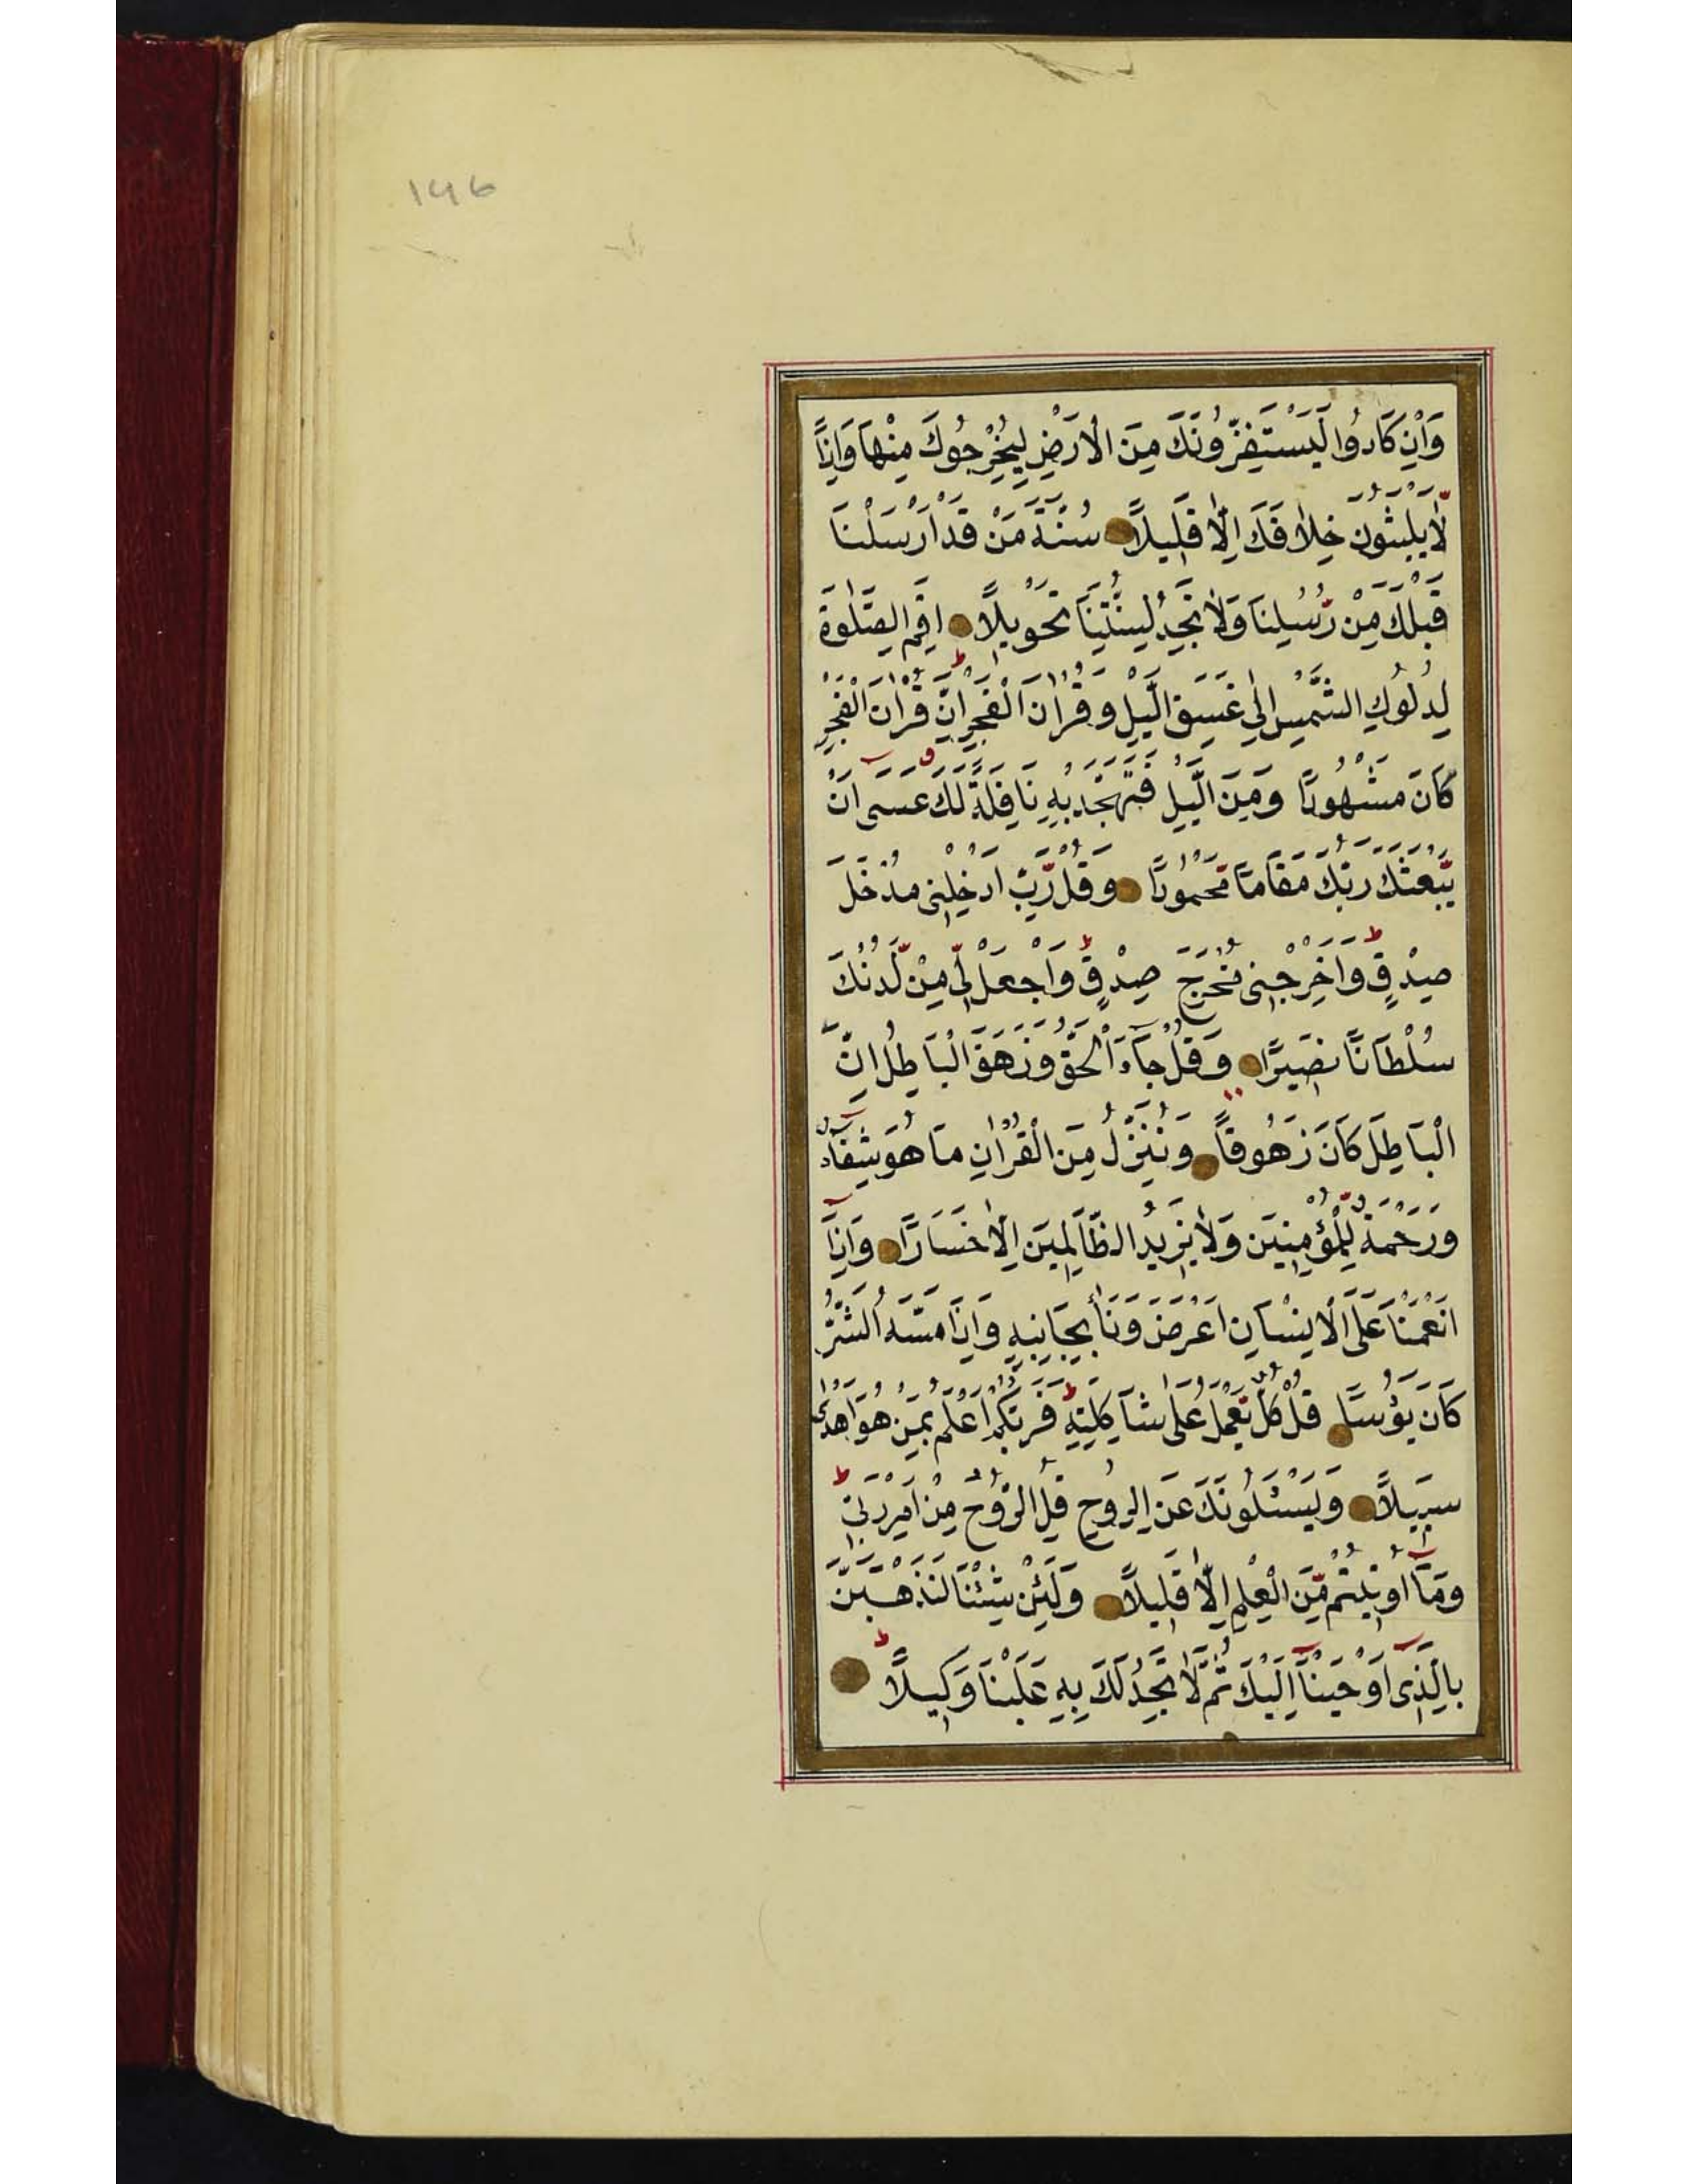 ۱۴۶
وَاِنْ كَادُوا لَيَسْتَفِزُّونَكَ مِنَ الْاَرْضِ لِيُخْرِجُوكَ مِنْهَا وَاِذًا
لَّا يَلْبَثُونَ خِلَافَكَ اِلَّا قَلِيلًا سُنَّةَ مَنْ قَدْ اَرْسَلْنَا
قَبْلَكَ مِنْ رُّسُلِنَا وَلَا تَجِدُ لِسُنَّتِنَا تَحْوِيلًا اَقِمِ الصَّلٰوةَ
لِدُلُوكِ الشَّمْسِ اِلٰى غَسَقِ الَّيْلِ وَقُرْاٰنَ الْفَجْرِ ط اِنَّ قُرْاٰنَ الْفَجْرِ
كَانَ مَشْهُودًا وَمِنَ الَّيْلِ فَتَهَجَّدْ بِهِ نَافِلَةً لَّكَ عَسٰى اَنْ
يَّبْعَثَكَ رَبُّكَ مَقَامًا مَّحْمُودًا وَقُلْ رَّبِّ اَدْخِلْنِى مُدْخَلَ
صِدْقٍ وَاَخْرِجْنِى مُخْرَجَ صِدْقٍ وَاجْعَلْ لِّى مِنْ لَّدُنْكَ
سُلْطَانًا نَصِيرًا وَقُلْ جَآءَ الْحَقُّ وَزَهَقَ الْبَاطِلُ اِنَّ
الْبَاطِلَ كَانَ زَهُوقًا وَنُنَزِّلُ مِنَ الْقُرْاٰنِ مَا هُوَ شِفَآءٌ
وَرَحْمَةٌ لِّلْمُؤْمِنِينَ وَلَا يَزِيدُ الظَّالِمِينَ اِلَّا خَسَارًا وَاِذَآ
اَنْعَمْنَا عَلَى الْاِنْسَانِ اَعْرَضَ وَنَأٰ بِجَانِبِهِ وَاِذَا مَسَّهُ الشَّرُّ
كَانَ يَؤُسًا قُلْ كُلٌّ يَّعْمَلُ عَلٰى شَاكِلَتِهِ ط فَرَبُّكُمْ اَعْلَمُ بِمَنْ هُوَ اَهْدٰى
سَبِيلًا وَيَسْئَلُونَكَ عَنِ الرُّوحِ قُلِ الرُّوحُ مِنْ اَمْرِ رَبِّى ط
وَمَآ اُوتِيتُمْ مِّنَ الْعِلْمِ اِلَّا قَلِيلًا وَلَئِنْ شِئْنَا لَنَذْهَبَنَّ
بِالَّذِىٓ اَوْحَيْنَآ اِلَيْكَ ثُمَّ لَا تَجِدُ لَكَ بِهِ عَلَيْنَا وَكِيلًا ط